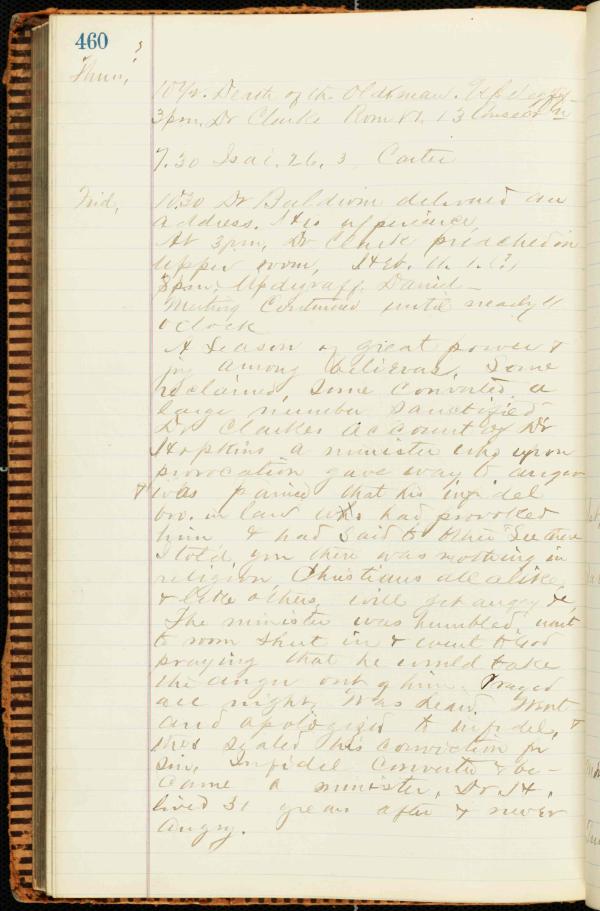 460
Thurs,
10 1/2. Death of the Old man. Updegraff
3 p.m. Dr Clarke Rom
7.30 Isai. 26. 3 Carter
Frid,
10.30 Dr Baldwin delivered an
address. His experience,
At 3 p.m, Dr Clark preached in
upper room, Heb. 11. 1.
8 p.m. Updegraff, David—
Meeting Continued until nearly 11
o clock
A Season of great power &
joy among believers, Some
reclaimed, Some converted a
large number Sanctified—
Dr Clarkes account of Dr
Hopkins a minister who upon
provocation gave way to anger
& was pained that his infidel
bro. in law who had provoked
him & had Said to "See there
I told you there was nothing in
religion Christians all alike,
& like others, will get angry &c,
The minister was humbled, went
to room Shut in & went to God
praying that he would take
the anger out of him. Prayed
all night, Was heard. Went
and apologized to infidel, &
this sealed his conviction for
Sin, Infidel Converted & be-
came a minister, Dr H,
lived 31 years after & never
angry.